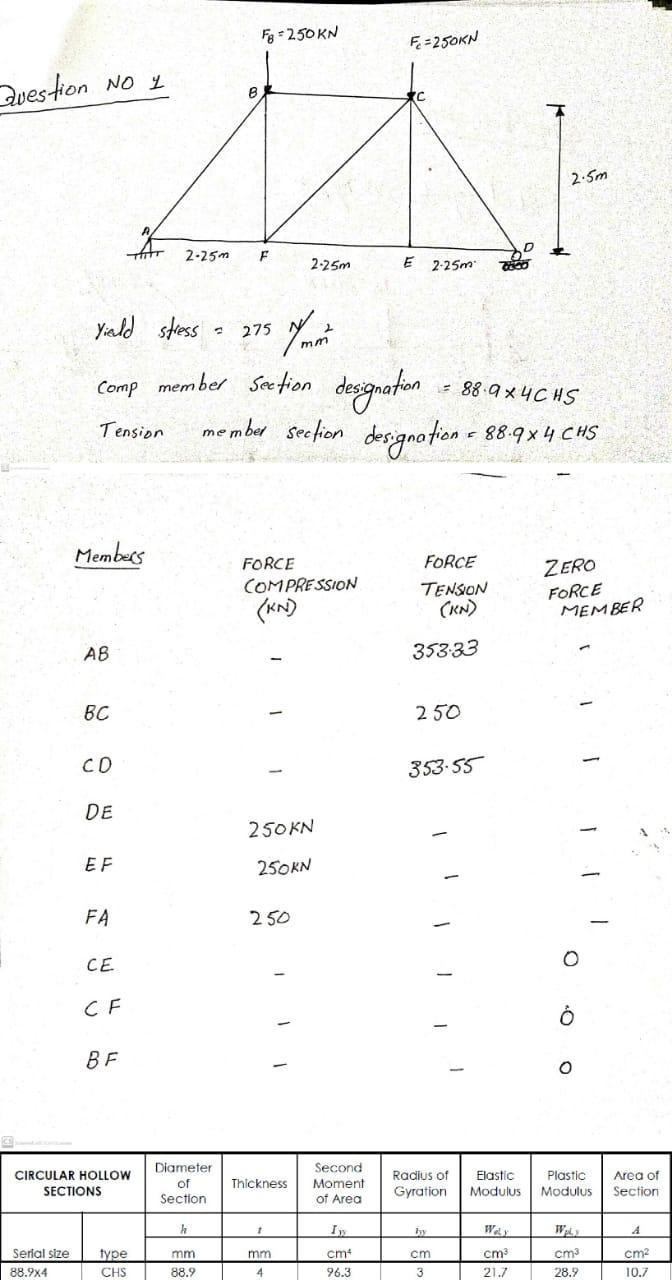 F_B = 250KN
F_C = 250KN
Question NO 1
B
C
2.5m
A
D
2.25m F
2.25m
E 2.25m
Yield stress = 275 N/mm²
Comp member Section designation = 88.9 x 4 CHS
Tension member section designation = 88.9 x 4 CHS
Members
FORCE COMPRESSION (KN)
FORCE TENSION (KN)
ZERO FORCE MEMBER
AB - 353.33 -
BC - 250 -
CD - 353.55 -
DE 250KN - -
EF 250KN - -
FA 250 - -
CE - - 0
CF - - 0
BF - - 0
CS
CIRCULAR HOLLOW SECTIONS
Diameter of Section
Thickness
Second Moment of Area
Radius of Gyration
Elastic Modulus
Plastic Modulus
Area of Section
h t I_yy i_yy W_el,y W_pl,y A
Serial size type mm mm cm⁴ cm cm³ cm³ cm²
88.9x4 CHS 88.9 4 96.3 3 21.7 28.9 10.7